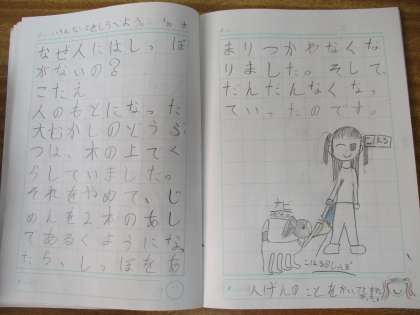 なぜ人にはしっぽ
がないの?
こたえ
人のもとになった
大むかしのどうぶ
つは、木の上でく
らしていました。
それをやめて、じ
めんを2本のあし
であるくようにな
たら、しっぽをあ
まりつかわなくな
りました。そして、
だんだんなくな
ていったのです。
人げんのことをかいてる